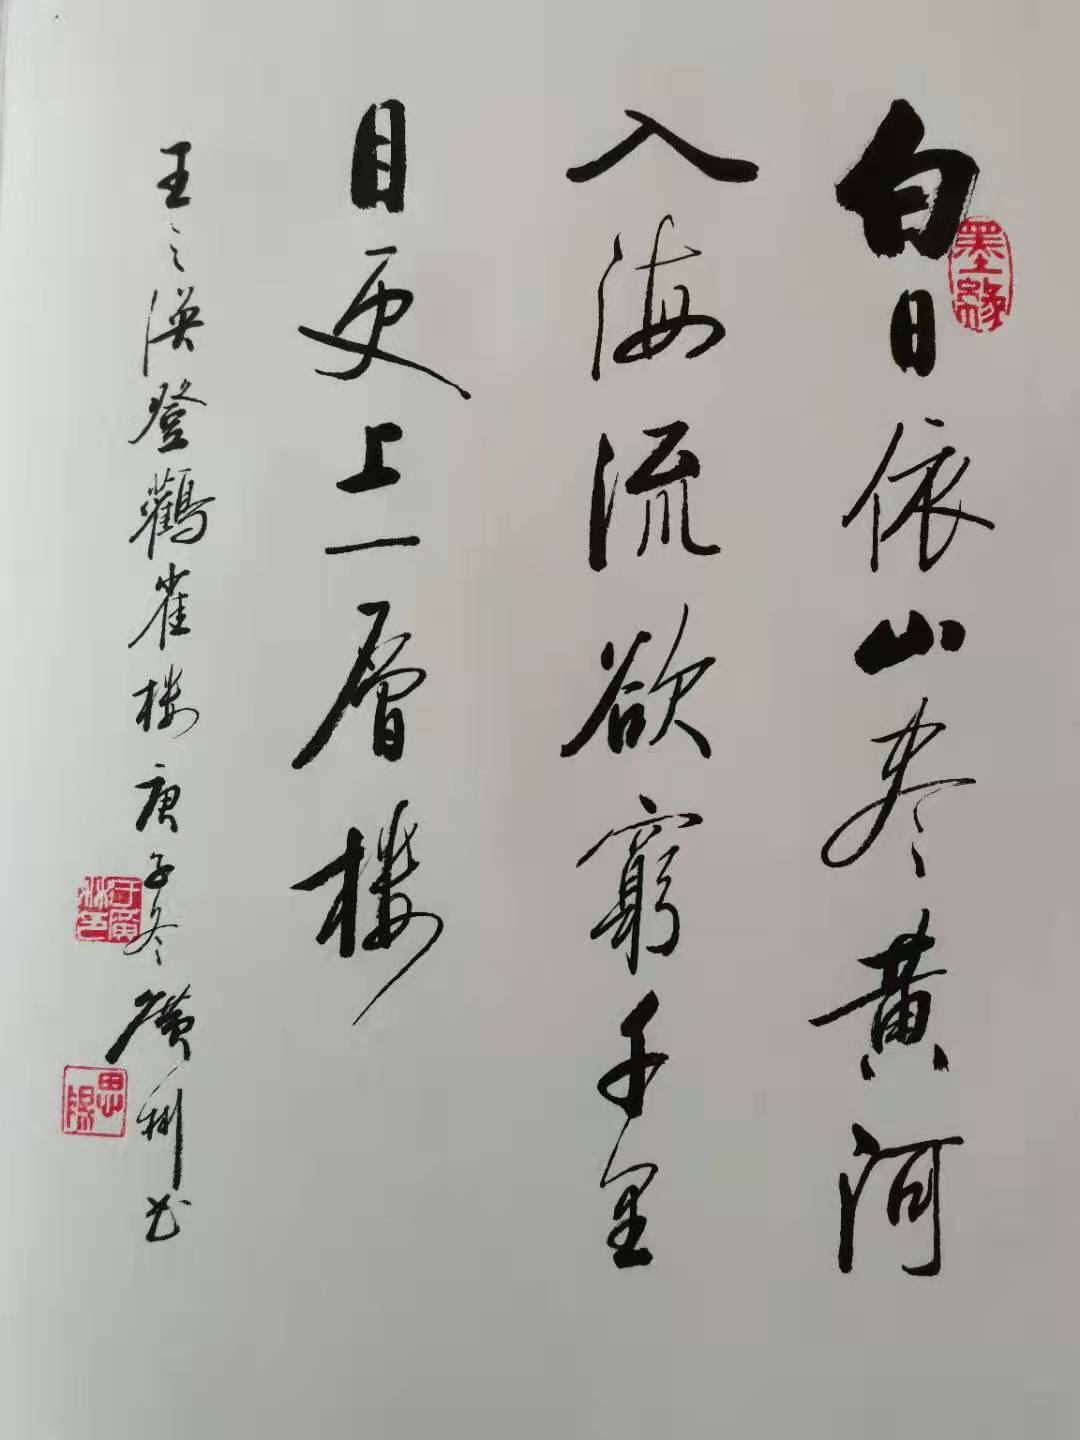 白日依山尽黄河
入海流欲窮千里
目更上一層楼
王之涣登鸛雀楼庚子冬廣利书
墨缘